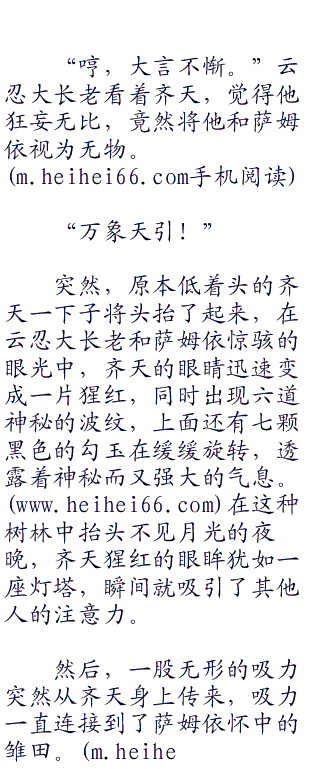 “哼，大言不惭。”云
忍大长老看着齐天，觉得他
狂妄无比，竟然将他和萨姆
依视为无物。
(m.heihei66.com手机阅读)
“万象天引！”
突然，原本低着头的齐
天一下子将头抬了起来，在
云忍大长老和萨姆依惊骇的
眼光中，齐天的眼睛迅速变
成一片猩红，同时出现六道
神秘的波纹，上面还有七颗
黑色的勾玉在缓缓旋转，透
露着神秘而又强大的气息。
(www.heihei66.com)在这种
树林中抬头不见月光的夜
晚，齐天猩红的眼眸犹如一
座灯塔，瞬间就吸引了其他
人的注意力。
然后，一股无形的吸力
突然从齐天身上传来，吸力
一直连接到了萨姆依怀中的
雏田。(m.heihe